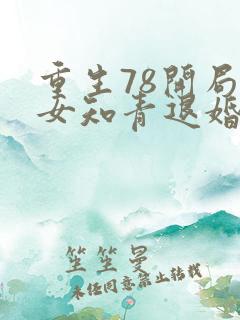 重生78开局
女知青退婚
笙笙曼
未经同意禁止转载